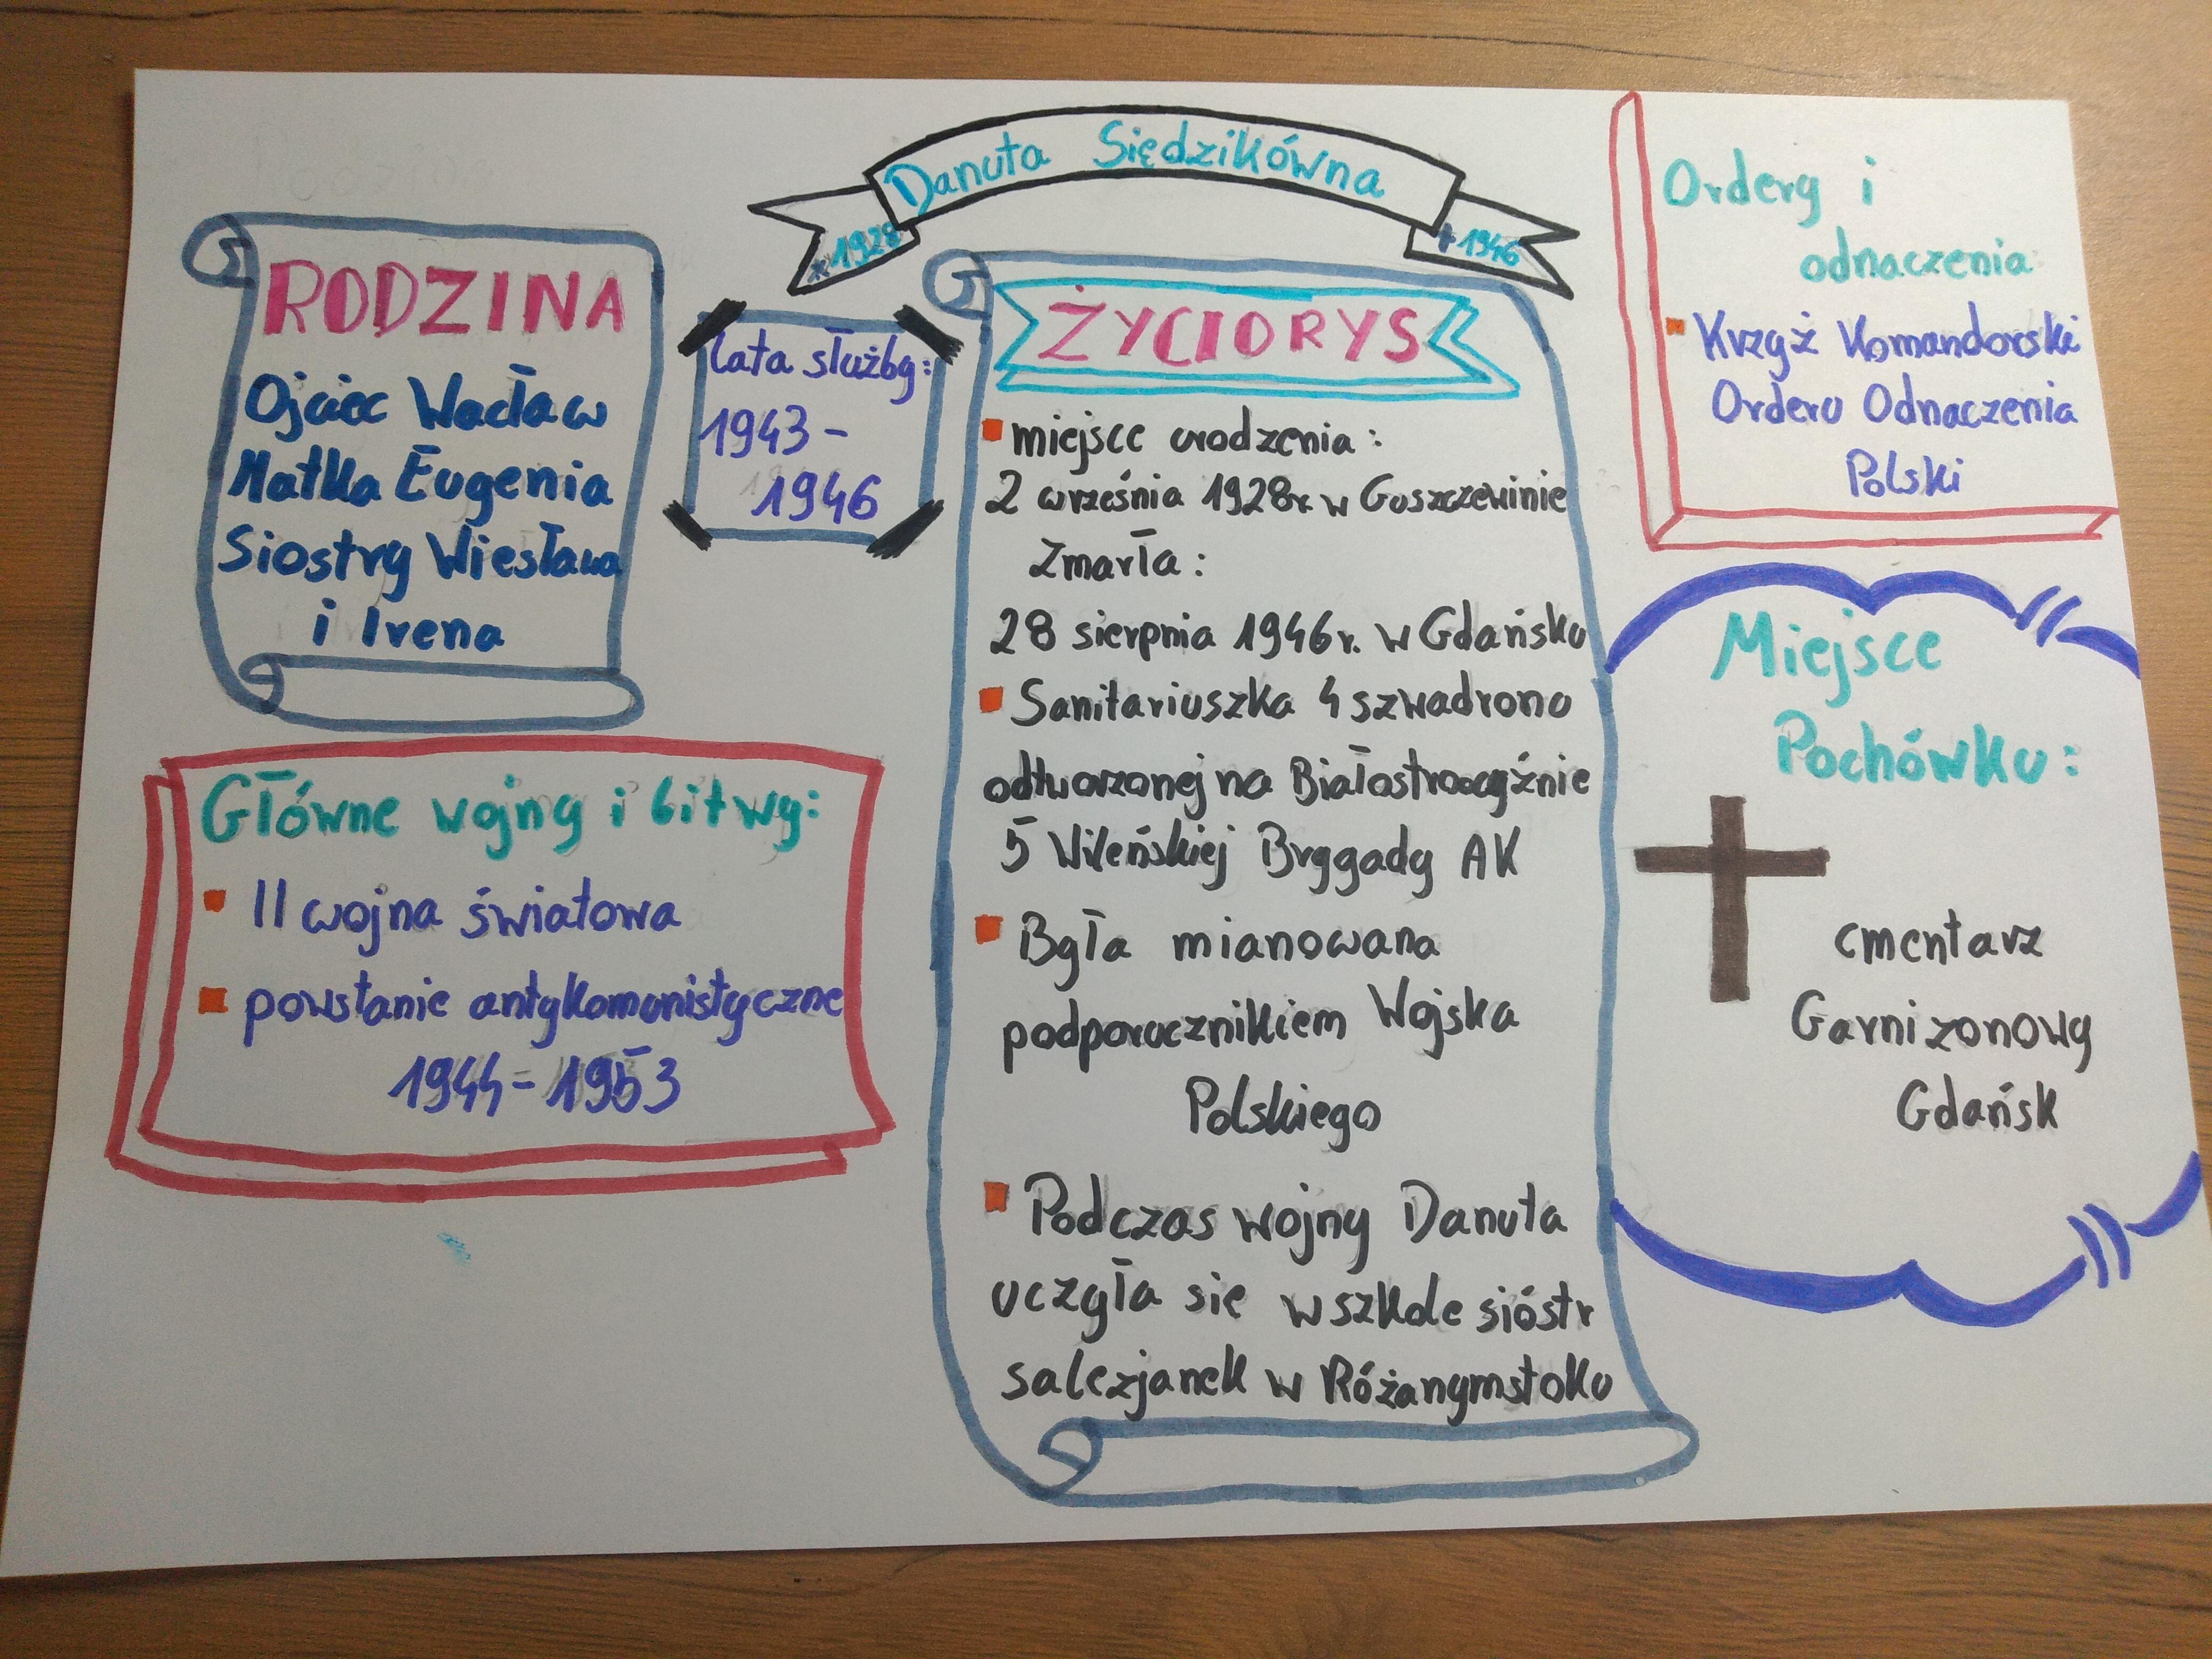 Danuta Siędzikówna
* 1928
+ 1946
RODZINA
Ojciec Wacław
Matka Eugenia
Siostry Wiesława
i Irena
Lata służby:
1943 -
1946
Główne wojny i bitwy:
II wojna światowa
powstanie antykomunistyczne
1944 - 1953
ŻYCIORYS
miejsce urodzenia:
2 września 1928r. w Guszczewinie
Zmarła:
28 sierpnia 1946r. w Gdańsku
Sanitariuszka 4 szwadronu
odtworzonej na
5 Wileńskiej Brygady AK
Była mianowana
podporucznikiem Wojska
Polskiego
Podczas wojny Danuta
uczyła się w szkole sióstr
salezjanek w Różanymstoku
Ordery i
odnaczenia
Krzyż Komandorski
Orderu Odnaczenia
Polski
Miejsce
Pochówku:
cmentarz
Garnizonowy
Gdańsk